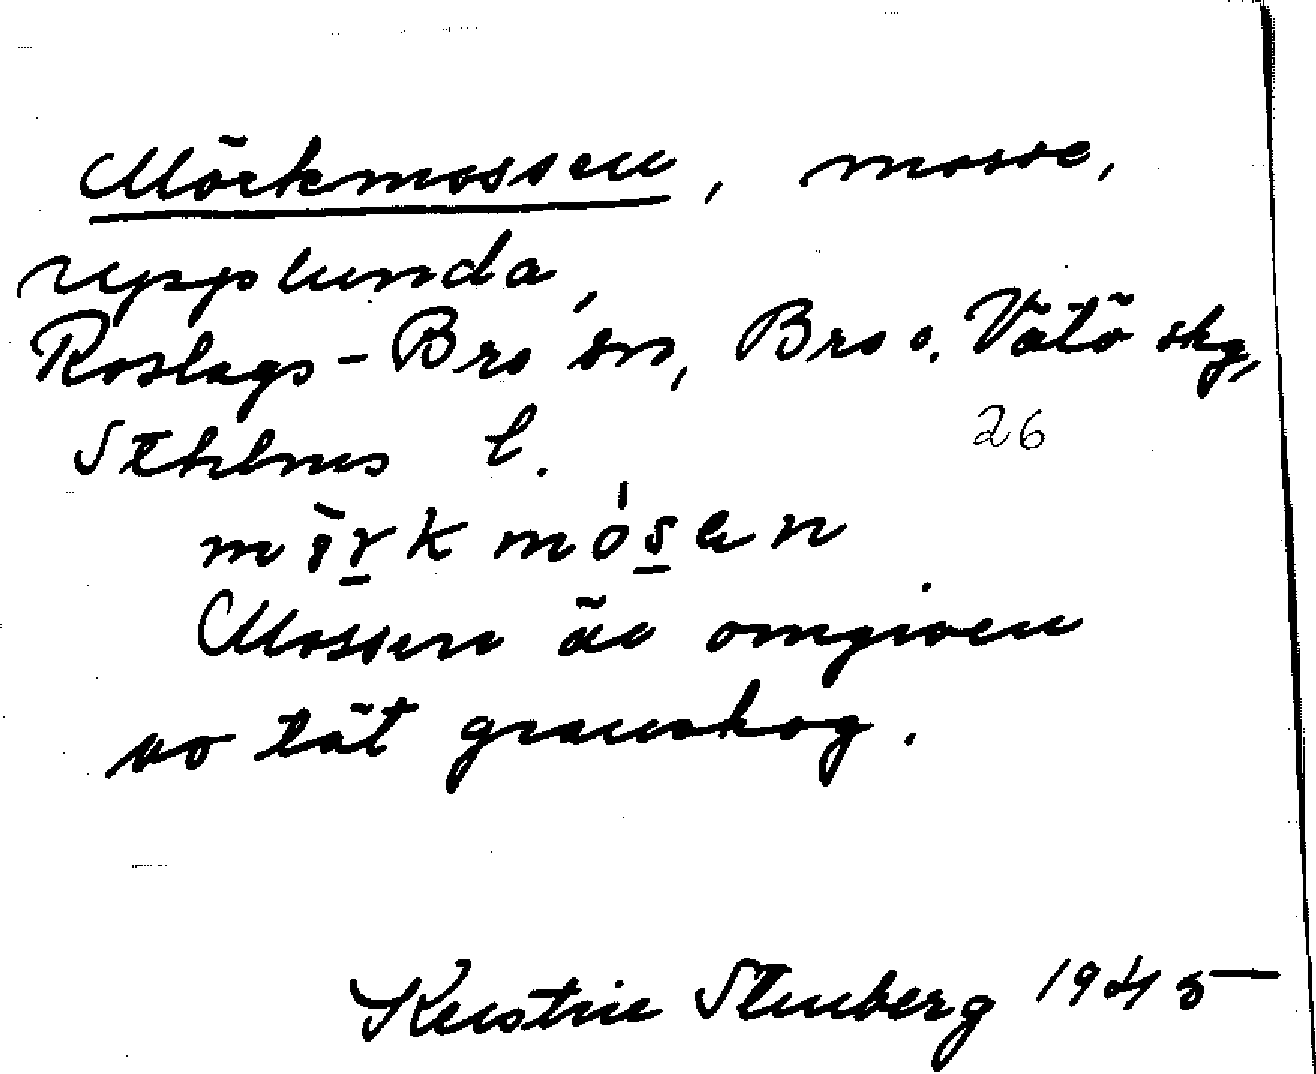 Mörkmossen, mosse,
Upplunda,
Roslags-Bro sn, Bro o. Vätö skg,
Sthlms l. 26
mörkmósen
Mossen är omgiven
av tät granskog.
Kerstin Stenberg 1945